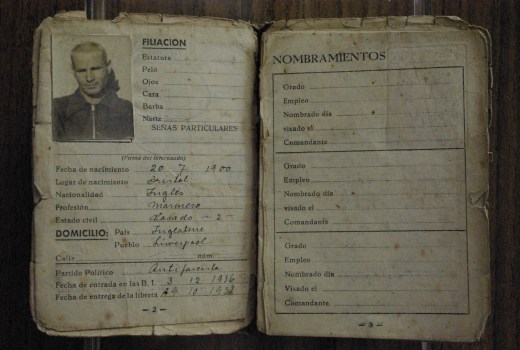 FILIACION
Estatura
Pelo
Ojos
Cara
Barba
Nariz
SEÑAS PARTICULARES
(Firma del interesado)
Fecha de nacimiento 20 7 1900
Lugar de nacimiento
Nacionalidad Ingles
Profesión Marinero
Estado civil Casado - 2 -
DOMICILIO: País Inglaterra
Pueblo Liverpool
Calle núm.
Partido Político Antifascista
Fecha de entrada en las B. I. 3 12 1936
Fecha de entrega de la libreta 10
— 2 —
NOMBRAMIENTOS
Grado
Empleo
Nombrado día
visado el
Comandante
Grado
Empleo
Nombrado día
visado el
Comandante
Grado
Empleo
Nombrado día
Visado el
Comandante
— 3 —